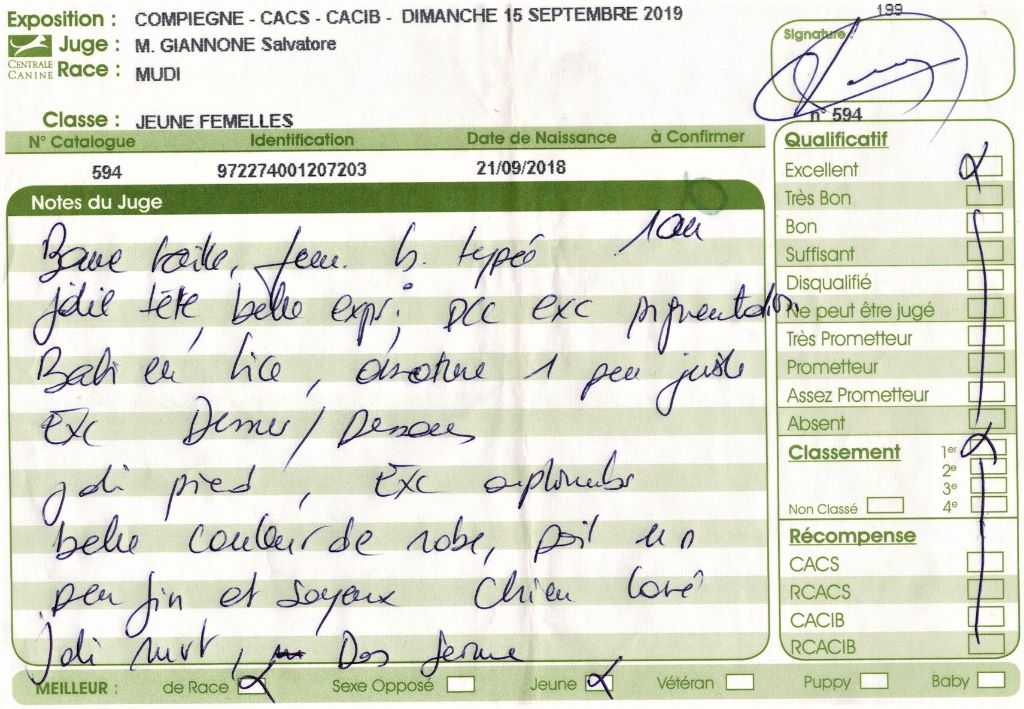 Exposition : COMPIEGNE - CACS - CACIB - DIMANCHE 15 SEPTEMBRE 2019
CENTRALE CANINE
Juge : M. GIANNONE Salvatore
Race : MUDI
Classe : JEUNE FEMELLES
199
Signature :
n° 594
N° Catalogue Identification Date de Naissance à Confirmer
594 972274001207203 21/09/2018
Notes du Juge
1 an
Bonne taille, fem. b. typée
jolie tête, belle expr; DCC exc pigmentation
Bati en lice, ossature 1 peu juste
Exc Dessus/Dessous
joli pied, Exc aplombs
belle couleur de robe, poil un
peu fin et soyeux Chien
joli mvt, Dos ferme
Qualificatif
Excellent
Très Bon
Bon
Suffisant
Disqualifié
Ne peut être jugé
Très Prometteur
Prometteur
Assez Prometteur
Absent
Classement 1er
2e
3e
Non Classé 4e
Récompense
CACS
RCACS
CACIB
RCACIB
MEILLEUR : de Race Sexe Opposé Jeune Vétéran Puppy Baby